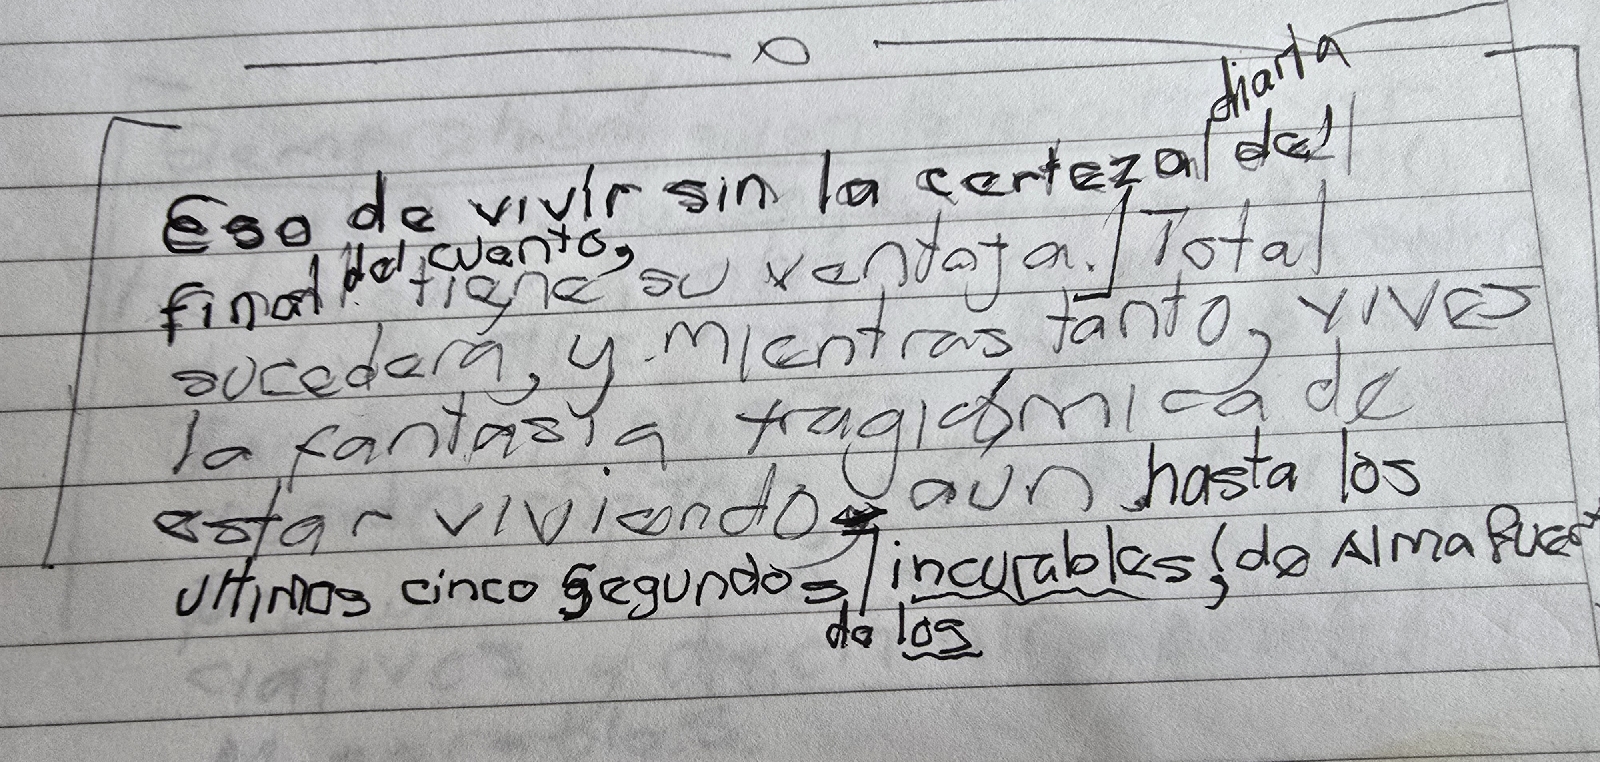 diaria
Eso de vivir sin la certeza del
final del cuento, tiene su ventaja. Total
sucedera, y mientras tanto, vives
la fantasía tragicómica de
estar viviendo aun hasta los
ultimos cinco segundos incurables; de Alma Fuert
de los